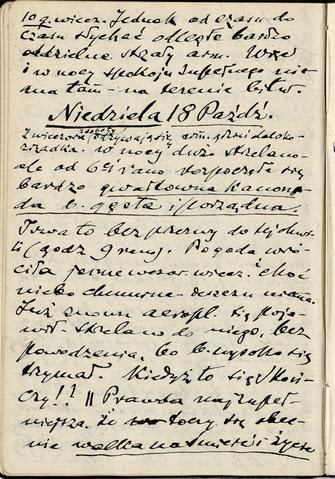 10 g. wiecz. Jednak od czasu do
czasu słychać odległe bardzo
oddzielne strzały arm. Więc
i w nocy spokoju zupełnego nie
ma tam - na terenie bitw.
Niedziela 18 Paźdź.
Z wieczora soboty odzywają się arm. gdzieś daleko
rzadka. W nocy dużo strzelano
ale od 6 g. rano rozpoczęła się
bardzo gwałtowna kanona-
da b. gęsta i porządna.
Trwa to bez przerwy do tej chwi-
li (godz 9 rano). Pogoda wró-
ciła jeszcze wczoraj wiecz. choć
niebo chmurne - deszczu niema.
Już znowu aeropl. się poja-
wił. Strzelano do niego, bez
powodzenia, bo b. wysoko się
trzymał. Kiedyż to się skoń-
czy!! || Prawda najzupeł-
niejsza, że toczy się obec-
nie walka na śmierć i życie